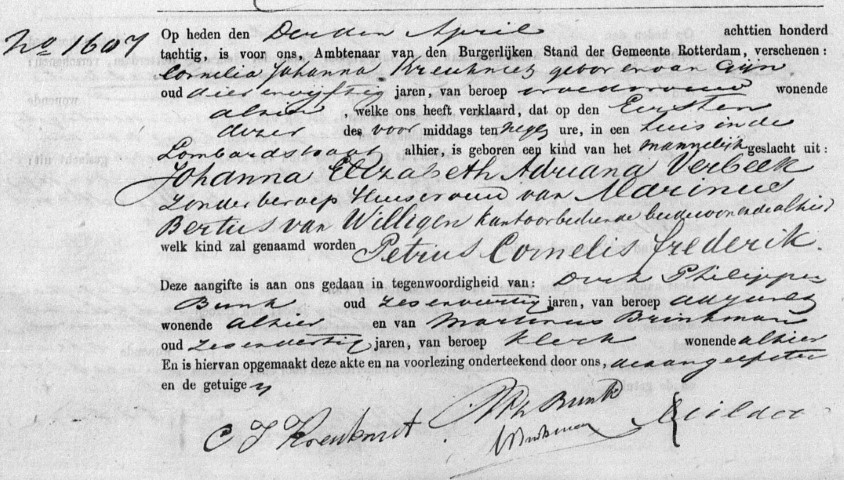 No 1607
Op heden den Derden April achttien honderd
tachtig, is voor ons, Ambtenaar van den Burgerlijken Stand der Gemeente Rotterdam, verschenen:
Cornelia Johanna geboren van
oud vier en vijftig jaren, van beroep vroedvrouw wonende
alhier, welke ons heeft verklaard, dat op den Eersten
dezer des voor middags ten negen ure, in een huis in de
Lombardstraat alhier, is geboren een kind van het mannelijk geslacht uit:
Johanna Elizabeth Adriana Verbeek
zonder beroep Huisvrouw van Marinus
Bertus van Willigen kantoorbediende beide wonende alhier
welk kind zal genaamd worden Petrus Cornelis Frederik.
Deze aangifte is aan ons gedaan in tegenwoordigheid van: Dirk Philippus
Bunk oud zes en veertig jaren, van beroep
wonende alhier en van Martinus Brinkman
oud zes en dertig jaren, van beroep klerk wonende alhier
En is hiervan opgemaakt deze akte en na voorlezing onderteekend door ons, de aangeefster
en de getuigen
C J DPh Bunk
Brinkman